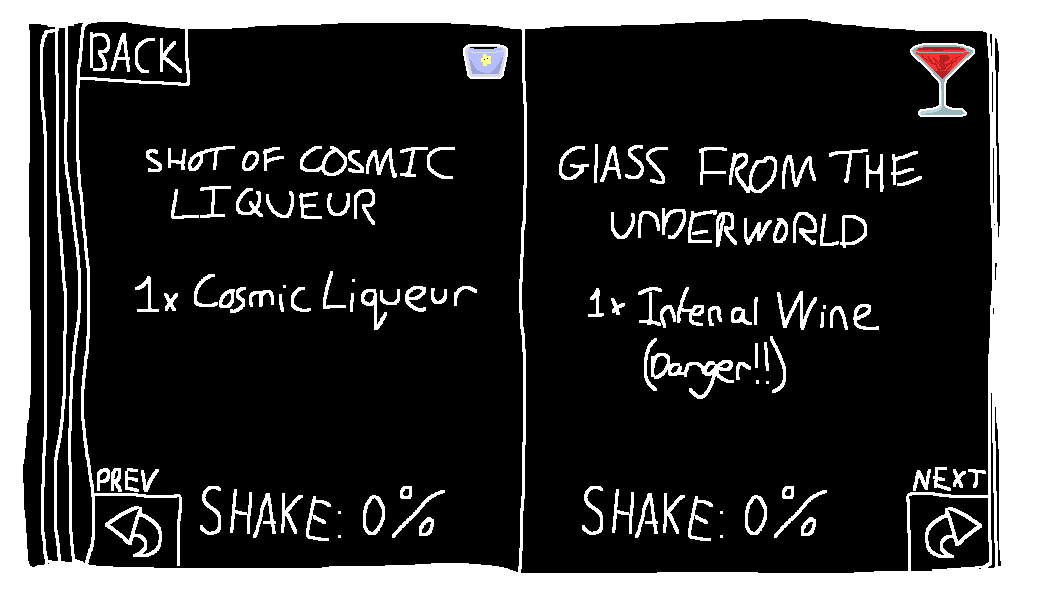 BACK
SHOT OF COSMIC
LIQUEUR
1x Cosmic Liqueur
PREV
SHAKE: 0%
GLASS FROM THE
UNDERWORLD
1x Infenal Wine
(Danger!!)
SHAKE: 0%
NEXT